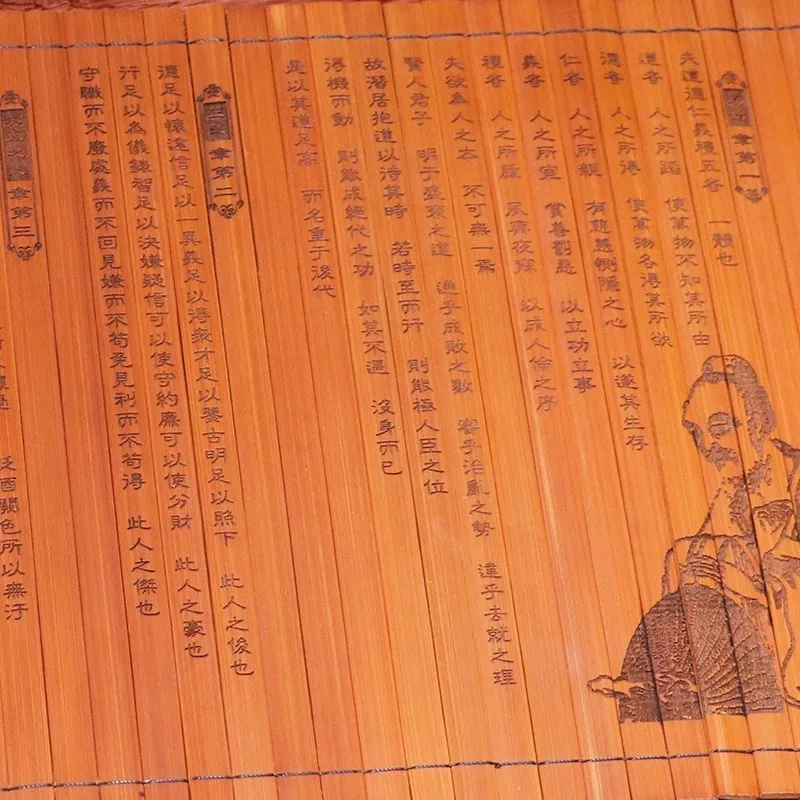 章第一
夫道德仁義禮五者　一體也
道者　人之所蹈　使萬物不知其所由
德者　人之所得　使萬物各得其所欲
仁者　人之所親　有慈慧惻隱之心　以遂其生存
義者　人之所宜　賞善罰惡　以立功立事
禮者　人之所履　夙興夜寐　以成人倫之序
夫欲為人之本　不可無一焉
賢人君子　明于盛衰之道　達乎成敗之數　審乎治亂之勢　達乎去就之理
故潛居抱道以待其時　若時至而行　則能極人臣之位
得機而動　則能成絕代之功　如其不遇　沒身而已
是以其道足高　而名重于後代
章第二
德足以懷遠信足以一異義足以得眾才足以鑒古明足以照下　此人之俊也
行足以為儀錶智足以決嫌疑信可以使守約廉可以使分財　此人之豪也
守職而不廢處義而不回見嫌而不苟免見利而不苟得　此人之傑也
章第三
貶酒闕色所以無汙